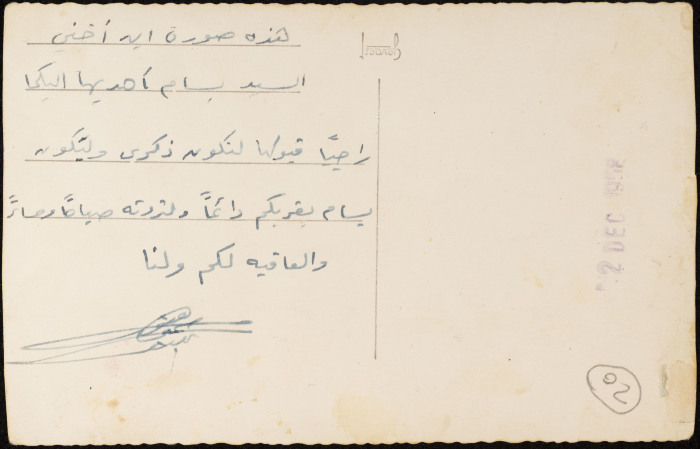 هذه صورة ابن أختي
السيد بسام أهديها اليكم
راجيًا قبولها لتكون ذكرى وليكون
بسام بقربكم دائمًا ولتردته صباحًا ومساءً
والعافيه لكم ولنا
Gevaert
2 DEC 195